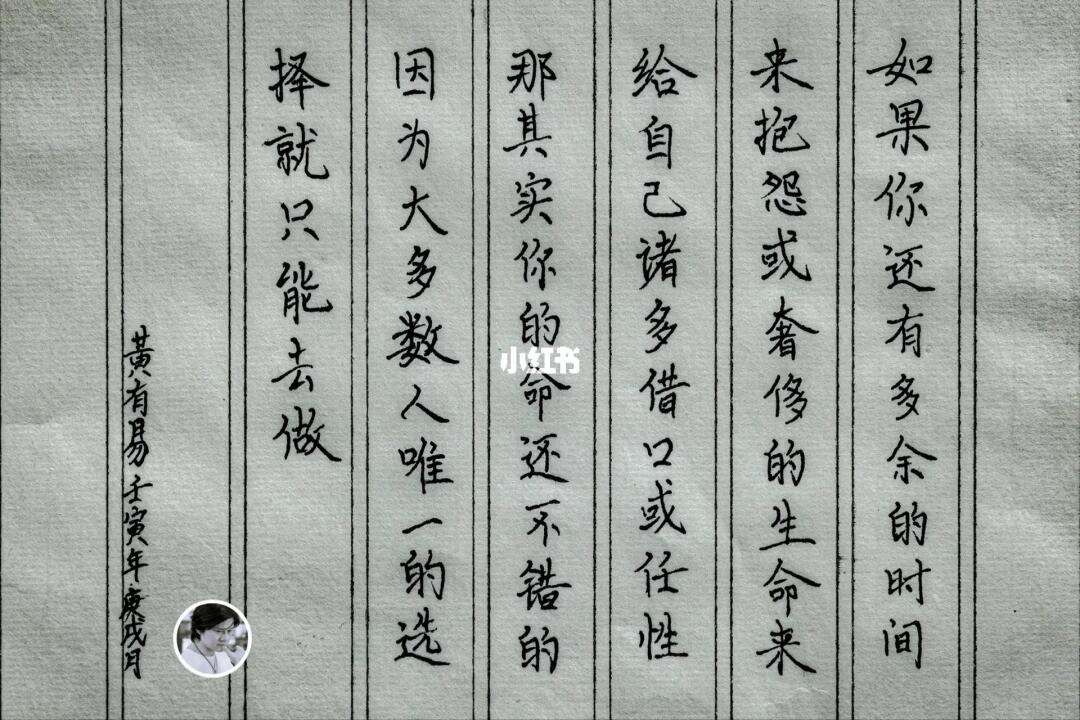 如果你还有多余的时间
来抱怨或奢侈的生命来
给自己诸多借口或任性
那其实你的命还不错的
因为大多数人唯一的选
择就只能去做
黃有易壬寅年庚戌月
小红书